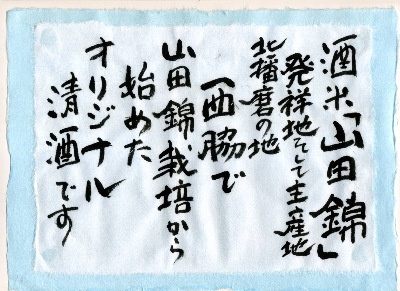 酒米「山田錦」
発祥地そして主産地
北播磨の地
「西脇で
山田錦栽培から
始めた
オリジナル
清酒です